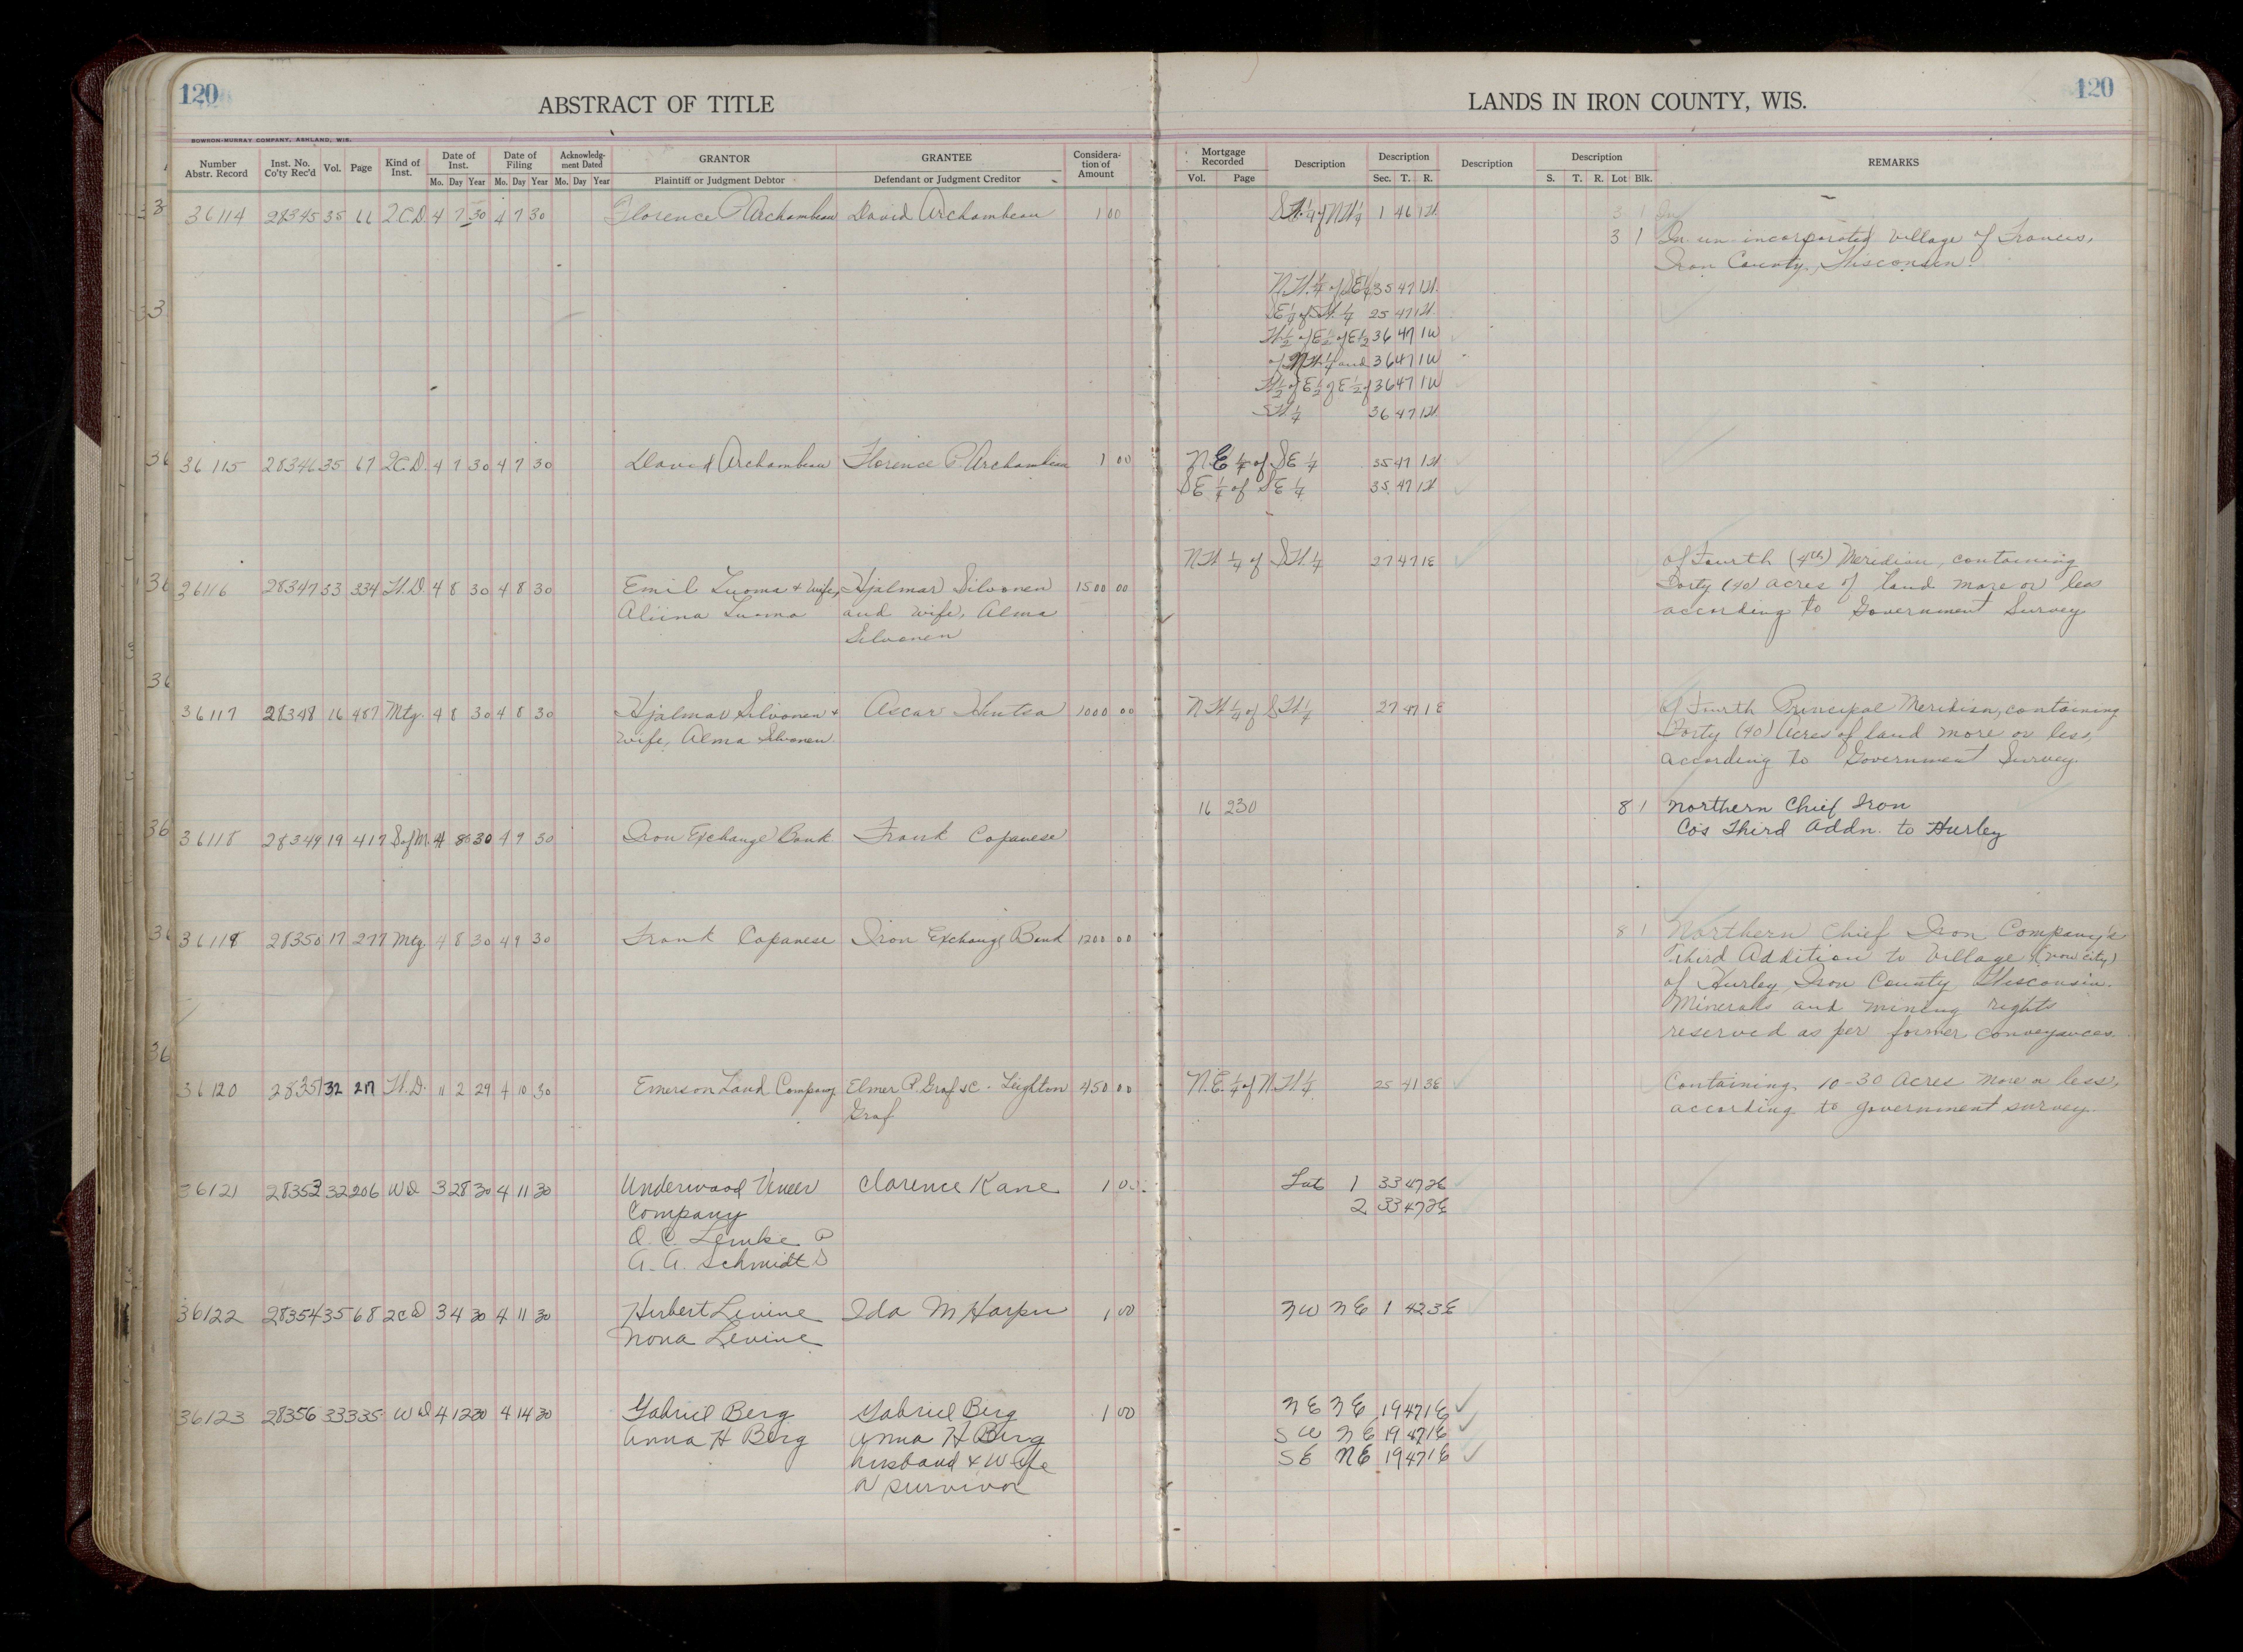 120
ABSTRACT OF TITLE
LANDS IN IRON COUNTY, WIS.
120
BOWRON-MURRAY COMPANY, ASHLAND, WIS.
Number Abstr. Record | Inst. No. Co'ty Rec'd | Vol. | Page | Kind of Inst. | Date of Inst. Mo. Day Year | Date of Filing Mo. Day Year | Acknowledg- ment Dated Mo. Day Year | GRANTOR Plaintiff or Judgment Debtor | GRANTEE Defendant or Judgment Creditor | Considera- tion of Amount | Mortgage Recorded Vol. Page | Description | Description Sec. T. R. | Description | Description S. T. R. Lot Blk. | REMARKS
36114 28345 35 66 2C.D. 4 7 30 4 7 30 Florence P Archambeau David Archambeau 1 00 1 46 1W. 3 1 In
3 1 In un-incorporated village of Francis,
Iron County, Wisconsin.
N.W.¼ of SE¼ 35 47 1W.
SE¼ of SW.¼ 25 47 1W.
W½ of E½ of E½ 36 47 1W
of NW.¼ and 36 47 1W
W½ of E½ of E½ of 36 47 1W
SW¼ 36 47 1W
36115 28346 35 67 2C.D. 4 7 30 4 7 30 David Archambeau Florence P. Archambeau 1 00 N.E ¼ of SE ¼ 35 47 1W
SE ¼ of SE ¼ 35 47 1W
NW ¼ of SW.¼ 27 47 1E of Fourth (4th) Meridian, containing
36116 28347 33 334 W.D. 4 8 30 4 8 30 Emil Luoma & wife, Hjalmar Silvonen 1500 00 Forty (40) acres of land more or less
Aliina Luoma and wife, Alma according to Government Survey
Silvonen
36117 28348 16 487 Mtg. 4 8 30 4 8 30 Hjalmar Silvonen & Ascar Hintsa 1000 00 NW¼ of SW¼ 27 47 1E of Fourth Principal Meridian, containing
wife, Alma Silvonen. Forty (40) Acres of land more or less,
according to Government Survey.
16 230 8 1 Northern Chief Iron
Co's Third Addn. to Hurley
36118 28349 19 417 S of M. 4 8 30 4 9 30 Iron Exchange Bank. Frank Copanese
36119 28350 17 277 Mtg 4 8 30 4 9 30 Frank Copanese Iron Exchange Bank 1200 00 8 1 Northern Chief Iron Company's
Third Addition to Village (now city)
of Hurley, Iron County Wisconsin.
Minerals and mining rights
reserved as per former conveyances.
36120 28351 32 217 W.D. 11 2 29 4 10 30 Emerson Land Company Elmer P. Graf & C. Leighton 450 00 N.E.¼ of N.W¼ 25 41 3E Containing 10-30 Acres more or less,
Graf according to government survey.
36121 28352 32 206 WD 3 28 30 4 11 30 Underwood Veneer Clarence Kane 1 00 Lot 1 33 47 2E
Company 2 33 47 2E
O. C. Lemke P
A. A. Schmidt S
36122 28354 35 68 2CD 3 4 30 4 11 30 Herbert Levine Ida M Harper 1 00 NW NE 1 42 3E
Nona Levine
36123 28356 33 335 WD 4 12 30 4 14 30 Gabriel Berg Gabriel Berg 1 00 NE NE 19 47 1E
Anna H Berg Anna H Berg SW NE 19 47 1E
husband & Wife SE NE 19 47 1E
or survivor